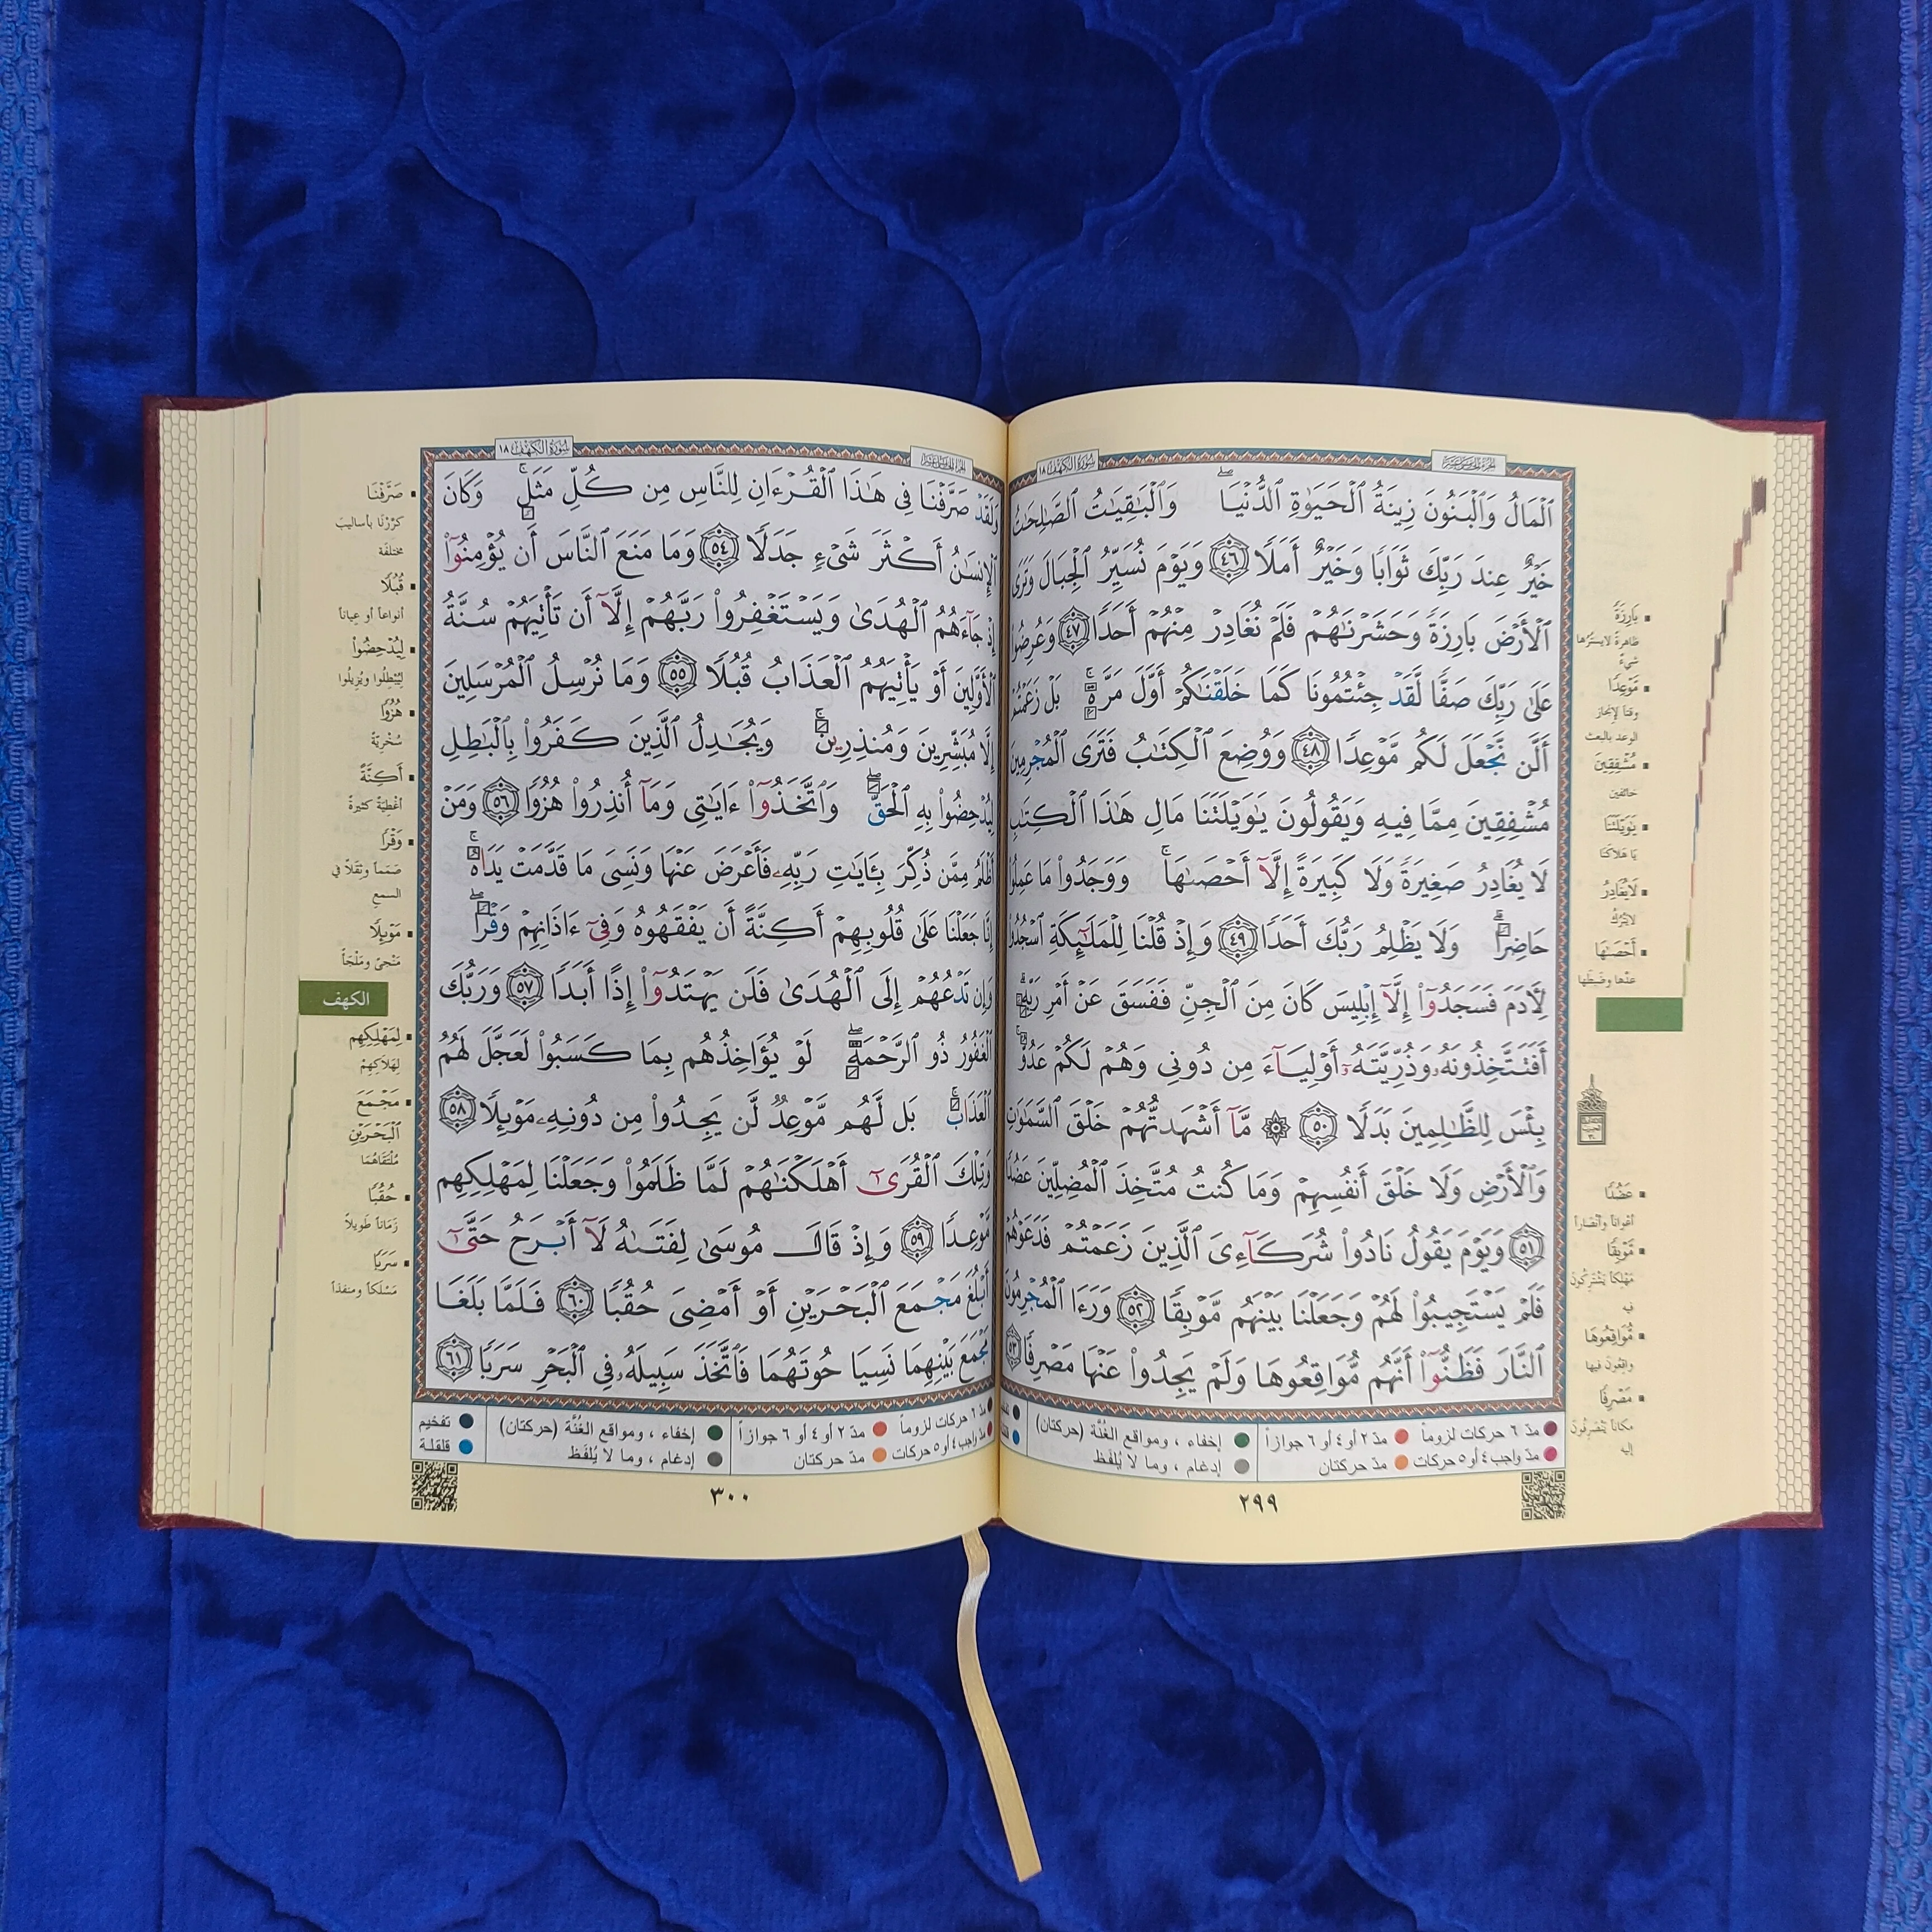 سورة الكهف ١٨
ٱلْمَالُ وَٱلْبَنُونَ زِينَةُ ٱلْحَيَوٰةِ ٱلدُّنْيَا ۖ وَٱلْبَٰقِيَٰتُ ٱلصَّٰلِحَٰتُ
خَيْرٌ عِندَ رَبِّكَ ثَوَابًا وَخَيْرٌ أَمَلًا ٤٦ وَيَوْمَ نُسَيِّرُ ٱلْجِبَالَ وَتَرَى
ٱلْأَرْضَ بَارِزَةً وَحَشَرْنَٰهُمْ فَلَمْ نُغَادِرْ مِنْهُمْ أَحَدًا ٤٧ وَعُرِضُوا۟
عَلَىٰ رَبِّكَ صَفًّا لَّقَدْ جِئْتُمُونَا كَمَا خَلَقْنَٰكُمْ أَوَّلَ مَرَّةٍۭ ۚ بَلْ زَعَمْتُمْ
أَلَّن نَّجْعَلَ لَكُم مَّوْعِدًا ٤٨ وَوُضِعَ ٱلْكِتَٰبُ فَتَرَى ٱلْمُجْرِمِينَ
مُشْفِقِينَ مِمَّا فِيهِ وَيَقُولُونَ يَٰوَيْلَتَنَا مَالِ هَٰذَا ٱلْكِتَٰبِ
لَا يُغَادِرُ صَغِيرَةً وَلَا كَبِيرَةً إِلَّآ أَحْصَىٰهَا ۚ وَوَجَدُوا۟ مَا عَمِلُوا۟
حَاضِرًا ۗ وَلَا يَظْلِمُ رَبُّكَ أَحَدًا ٤٩ وَإِذْ قُلْنَا لِلْمَلَٰٓئِكَةِ ٱسْجُدُوا۟
لِءَادَمَ فَسَجَدُوٓا۟ إِلَّآ إِبْلِيسَ كَانَ مِنَ ٱلْجِنِّ فَفَسَقَ عَنْ أَمْرِ رَبِّهِۦٓ ۗ
أَفَتَتَّخِذُونَهُۥ وَذُرِّيَّتَهُۥٓ أَوْلِيَآءَ مِن دُونِى وَهُمْ لَكُمْ عَدُوٌّۢ ۚ
بِئْسَ لِلظَّٰلِمِينَ بَدَلًا ٥٠ ۞ مَّآ أَشْهَدتُّهُمْ خَلْقَ ٱلسَّمَٰوَٰتِ
وَٱلْأَرْضِ وَلَا خَلْقَ أَنفُسِهِمْ وَمَا كُنتُ مُتَّخِذَ ٱلْمُضِلِّينَ عَضُدًا
٥١ وَيَوْمَ يَقُولُ نَادُوا۟ شُرَكَآءِىَ ٱلَّذِينَ زَعَمْتُمْ فَدَعَوْهُمْ
فَلَمْ يَسْتَجِيبُوا۟ لَهُمْ وَجَعَلْنَا بَيْنَهُم مَّوْبِقًا ٥٢ وَرَءَا ٱلْمُجْرِمُونَ
ٱلنَّارَ فَظَنُّوٓا۟ أَنَّهُم مُّوَاقِعُوهَا وَلَمْ يَجِدُوا۟ عَنْهَا مَصْرِفًا ٥٣
بَارِزَةً
ظاهرة لا يسترها
شيء
مَوْعِدًا
وقتاً لإنجاز
الوعد بالبعث
مُشْفِقِينَ
خائفين
يَٰوَيْلَتَنَا
يا هلاكنا
لَا يُغَادِرُ
لا يترك
أَحْصَىٰهَا
عدّها وضبطها
عَضُدًا
أعواناً وأنصاراً
مَّوْبِقًا
مهلكاً يشتركون
فيه
مُّوَاقِعُوهَا
واقعون فيها
مَصْرِفًا
مكاناً ينصرفون
إليه
مدّ ٦ حركات لزوماً مدّ ٢ أو ٤ أو ٦ جوازاً إخفاء ، ومواقع الغُنَّة (حركتان)
مدّ واجب ٤ أو ٥ حركات مدّ حركتان إدغام ، وما لا يُلفَظ
٢٩٩
سورة الكهف ١٨
وَلَقَدْ صَرَّفْنَا فِى هَٰذَا ٱلْقُرْءَانِ لِلنَّاسِ مِن كُلِّ مَثَلٍ ۚ وَكَانَ
ٱلْإِنسَٰنُ أَكْثَرَ شَىْءٍ جَدَلًا ٥٤ وَمَا مَنَعَ ٱلنَّاسَ أَن يُؤْمِنُوٓا۟
إِذْ جَآءَهُمُ ٱلْهُدَىٰ وَيَسْتَغْفِرُوا۟ رَبَّهُمْ إِلَّآ أَن تَأْتِيَهُمْ سُنَّةُ
ٱلْأَوَّلِينَ أَوْ يَأْتِيَهُمُ ٱلْعَذَابُ قُبُلًا ٥٥ وَمَا نُرْسِلُ ٱلْمُرْسَلِينَ
إِلَّا مُبَشِّرِينَ وَمُنذِرِينَ ۚ وَيُجَٰدِلُ ٱلَّذِينَ كَفَرُوا۟ بِٱلْبَٰطِلِ
لِيُدْحِضُوا۟ بِهِ ٱلْحَقَّ ۖ وَٱتَّخَذُوٓا۟ ءَايَٰتِى وَمَآ أُنذِرُوا۟ هُزُوًا ٥٦ وَمَنْ
أَظْلَمُ مِمَّن ذُكِّرَ بِـَٔايَٰتِ رَبِّهِۦ فَأَعْرَضَ عَنْهَا وَنَسِىَ مَا قَدَّمَتْ يَدَاهُ ۚ
إِنَّا جَعَلْنَا عَلَىٰ قُلُوبِهِمْ أَكِنَّةً أَن يَفْقَهُوهُ وَفِىٓ ءَاذَانِهِمْ وَقْرًا ۖ
وَإِن تَدْعُهُمْ إِلَى ٱلْهُدَىٰ فَلَن يَهْتَدُوٓا۟ إِذًا أَبَدًا ٥٧ وَرَبُّكَ
ٱلْغَفُورُ ذُو ٱلرَّحْمَةِ ۖ لَوْ يُؤَاخِذُهُم بِمَا كَسَبُوا۟ لَعَجَّلَ لَهُمُ
ٱلْعَذَابَ ۚ بَل لَّهُم مَّوْعِدٌ لَّن يَجِدُوا۟ مِن دُونِهِۦ مَوْئِلًا ٥٨
وَتِلْكَ ٱلْقُرَىٰٓ أَهْلَكْنَٰهُمْ لَمَّا ظَلَمُوا۟ وَجَعَلْنَا لِمَهْلِكِهِم
مَّوْعِدًا ٥٩ وَإِذْ قَالَ مُوسَىٰ لِفَتَىٰهُ لَآ أَبْرَحُ حَتَّىٰٓ
أَبْلُغَ مَجْمَعَ ٱلْبَحْرَيْنِ أَوْ أَمْضِىَ حُقُبًا ٦٠ فَلَمَّا بَلَغَا
مَجْمَعَ بَيْنِهِمَا نَسِيَا حُوتَهُمَا فَٱتَّخَذَ سَبِيلَهُۥ فِى ٱلْبَحْرِ سَرَبًا ٦١
صَرَّفْنَا
كرّرنا بأساليب
مختلفة
قُبُلًا
أنواعاً أو عياناً
لِيُدْحِضُوا۟
ليبطلوا ويزيلوا
هُزُوًا
سخرية
أَكِنَّةً
أغطية كثيرة
وَقْرًا
صمماً وثقلاً في
السمع
مَوْئِلًا
منجى وملجأ
الكهف
لِمَهْلِكِهِم
لهلاكهم
مَجْمَعَ
ٱلْبَحْرَيْنِ
ملتقاهما
حُقُبًا
زماناً طويلاً
سَرَبًا
مسلكاً ومنفذاً
مدّ ٦ حركات لزوماً مدّ ٢ أو ٤ أو ٦ جوازاً إخفاء ، ومواقع الغُنَّة (حركتان) تفخيم
مدّ واجب ٤ أو ٥ حركات مدّ حركتان إدغام ، وما لا يُلفَظ قلقلة
٣٠٠